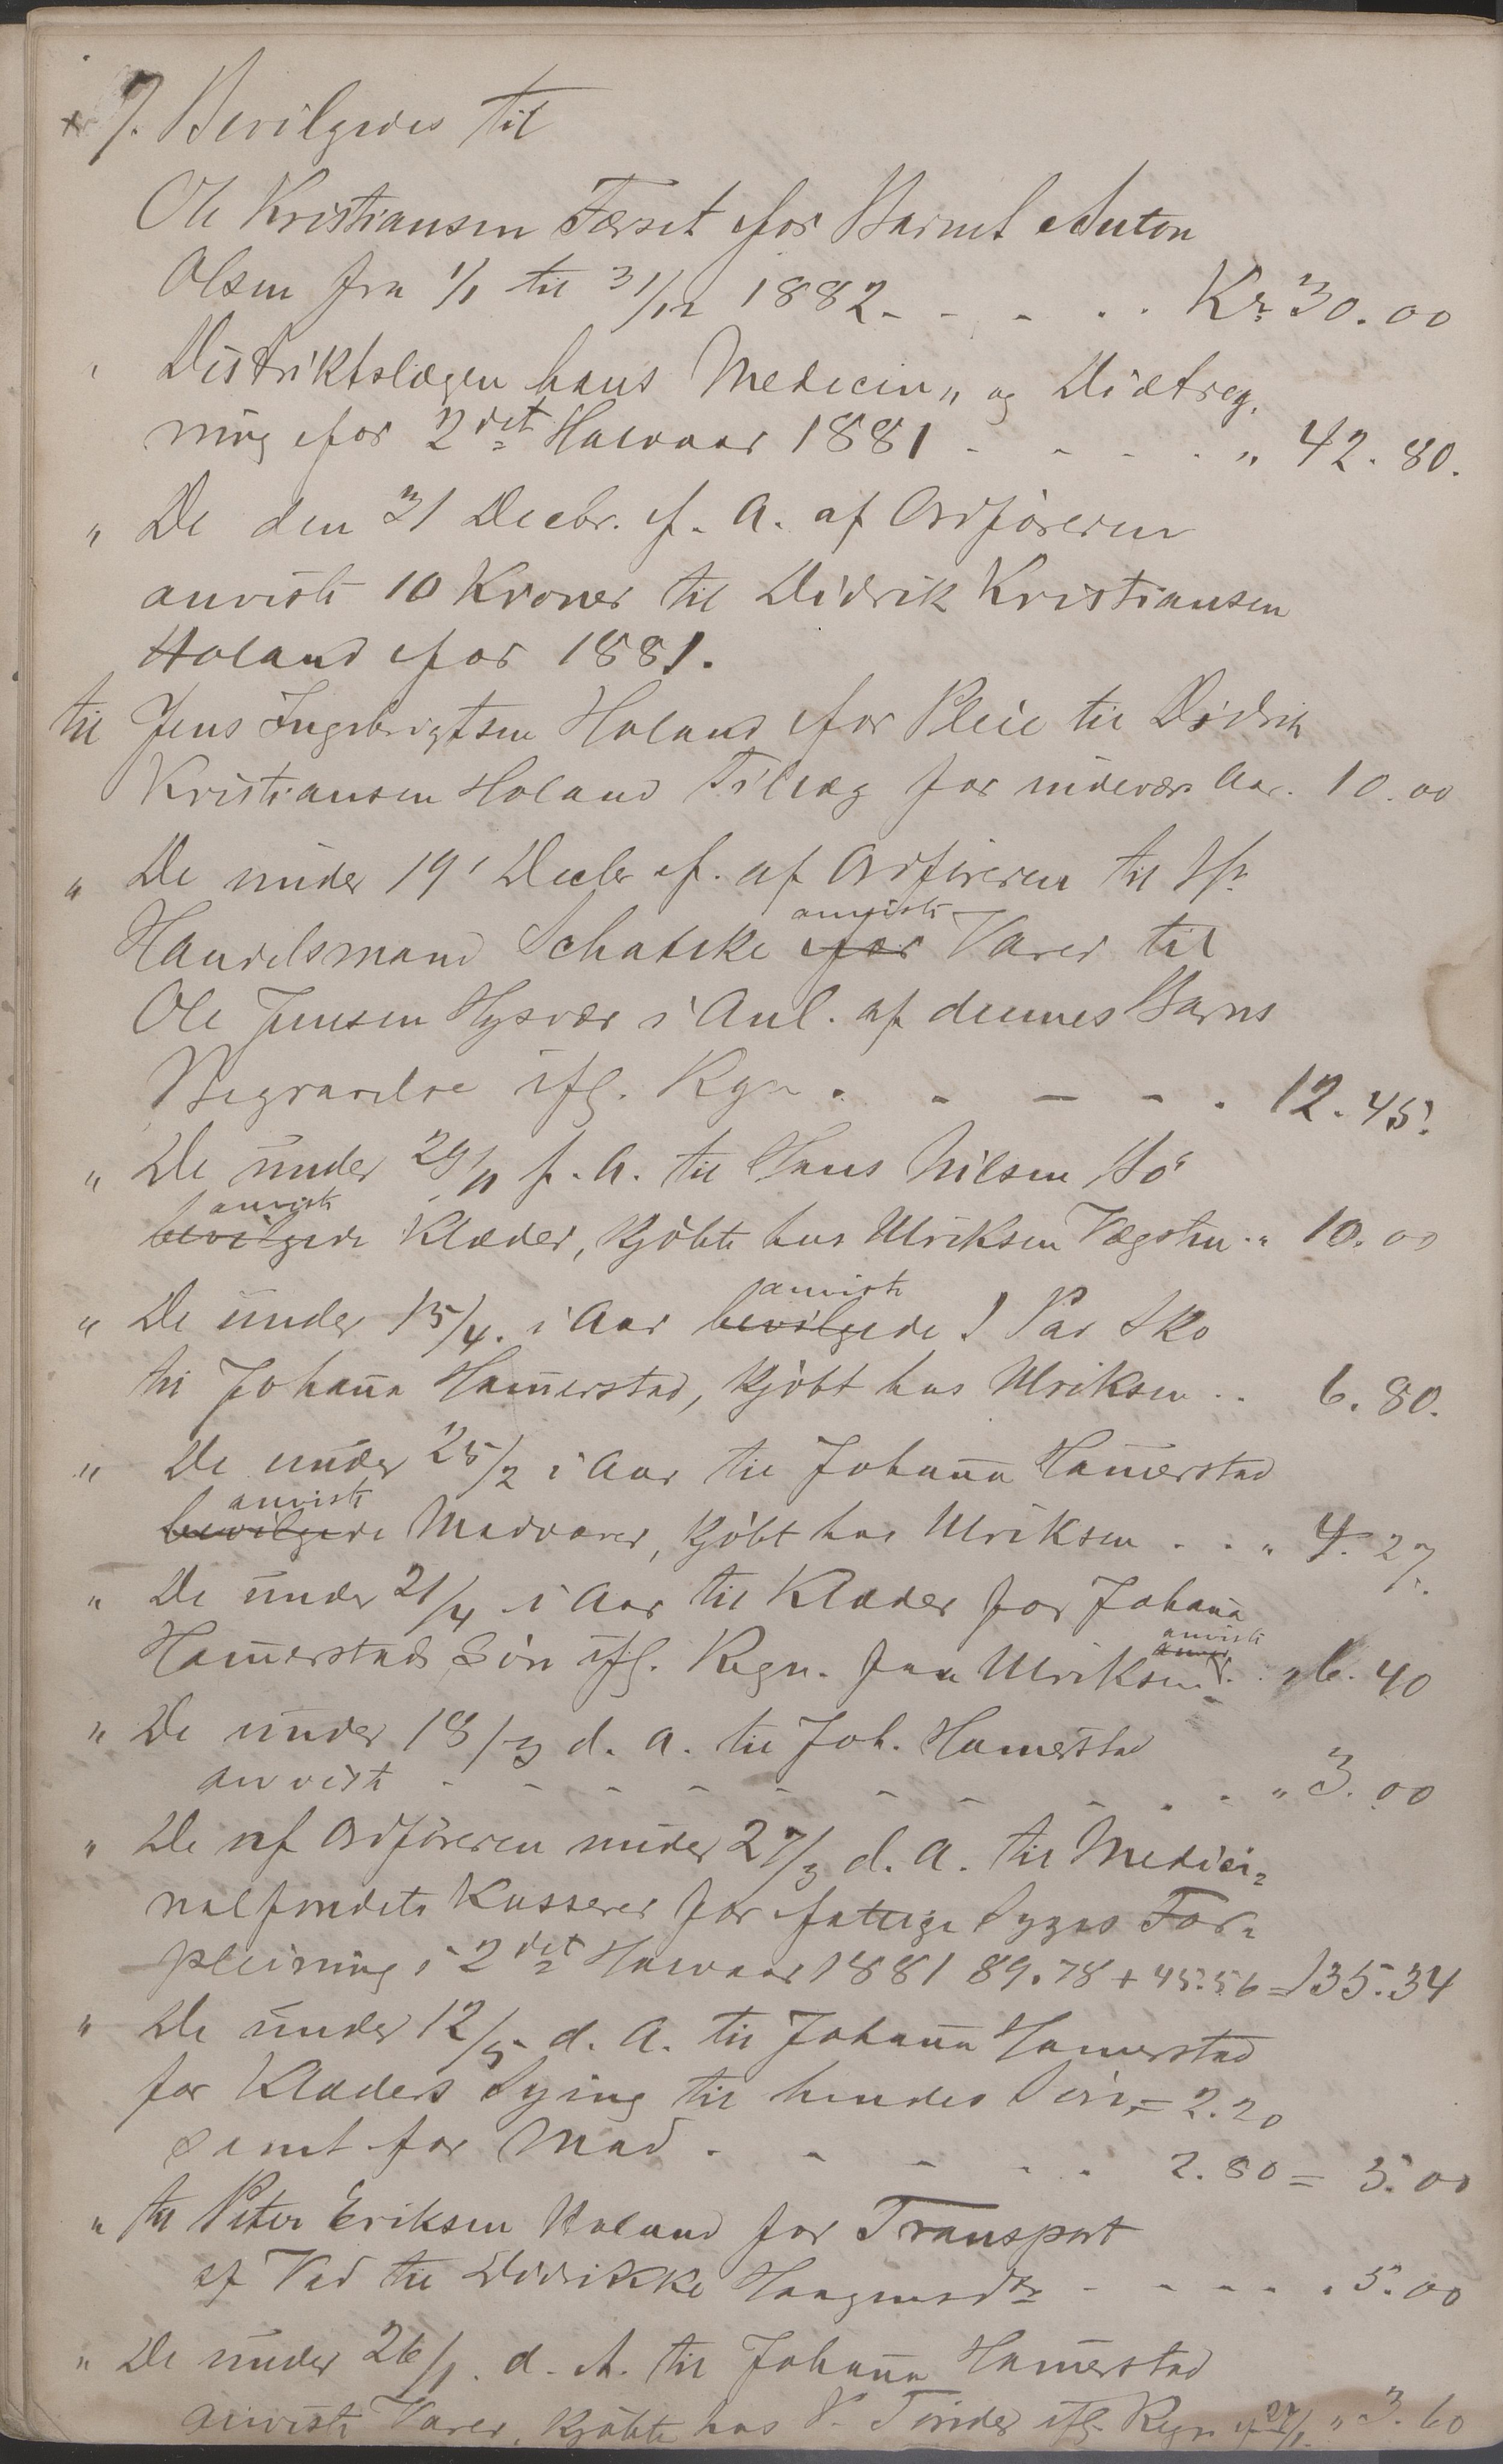 7. Bevilgedes til
Ole Kristiansen Færset for Barnet Anton
Olsen fra 1/1 til 31/12 1882 - - - . . Kr. 30.00
Distriktslægen hans Medicin„ og Diætreg,
ning for 2det Halvaar 1881 - - - - . „ 42.80.
„ De den 31 Decbr. f. A. af Ordføreren
anviste 10 Kroner til Didrik Kristiansen
Holand for 1881.
til Jens Ingebrigtsen Holand for Pleie til Didrik
Kristiansen Holand Tillæg for indevær. Aar. 10.00
„ De under 19' Decbr f. af Ordføreren til Hr.
anviste
Handelsmand Schatske for Varer til
Ole Jensen Hysvær i Anl. af dennes Barns
Begravelse ifg. Regn . - - - . 12.45.
„ De under 29/11 f. A. til Hans Nilsen Bø
anviste
bevilgede Klæder, kjøbte hos Ulriksen Vægsten . „ 10.00
anviste
„ De under 15/4. i Aar bevilgede 1 Par Sko
til Johanna Hammerstad, kjøbt hos Ulriksen . . 6.80.
„ De under 25/2 i Aar til Johanna Hammerstad
anviste
bevilgede Madvarer, kjøbt hos Ulriksen . . „ 4.27.
„ De under 21/4 i Aar til Klæder for Johanna
anviste
Hammerstads Søn ifg. Regn. fra Ulriksen . . „ 6.40
„ De under 18/3 d. A. til Joh. Hammerstad
anviste - - - - - - - - . . „ 3.00
„ De af Ordføreren under 27/3 d. A. til Medici-
nalfondets Kasserer for fattige Syges For-
pleining i 2det Halvaar 1881 89.78 + 45.56 = 135.34
„ De under 12/5 d. A. til Johanna Hammerstad
for Klæders Sying til hendes Søn, = 2.20
samt for Mad . - - - . 2.80 = 5.00
„ til Peter Eriksen Holand for Transport
af Ved til Didrikke Haagensdtr - - - - . 5.00
„ De under 26/1. d. A. til Johanna Hammerstad
anviste Varer, kjøbte hos P. Tønder ifg. Regn „ 3.60